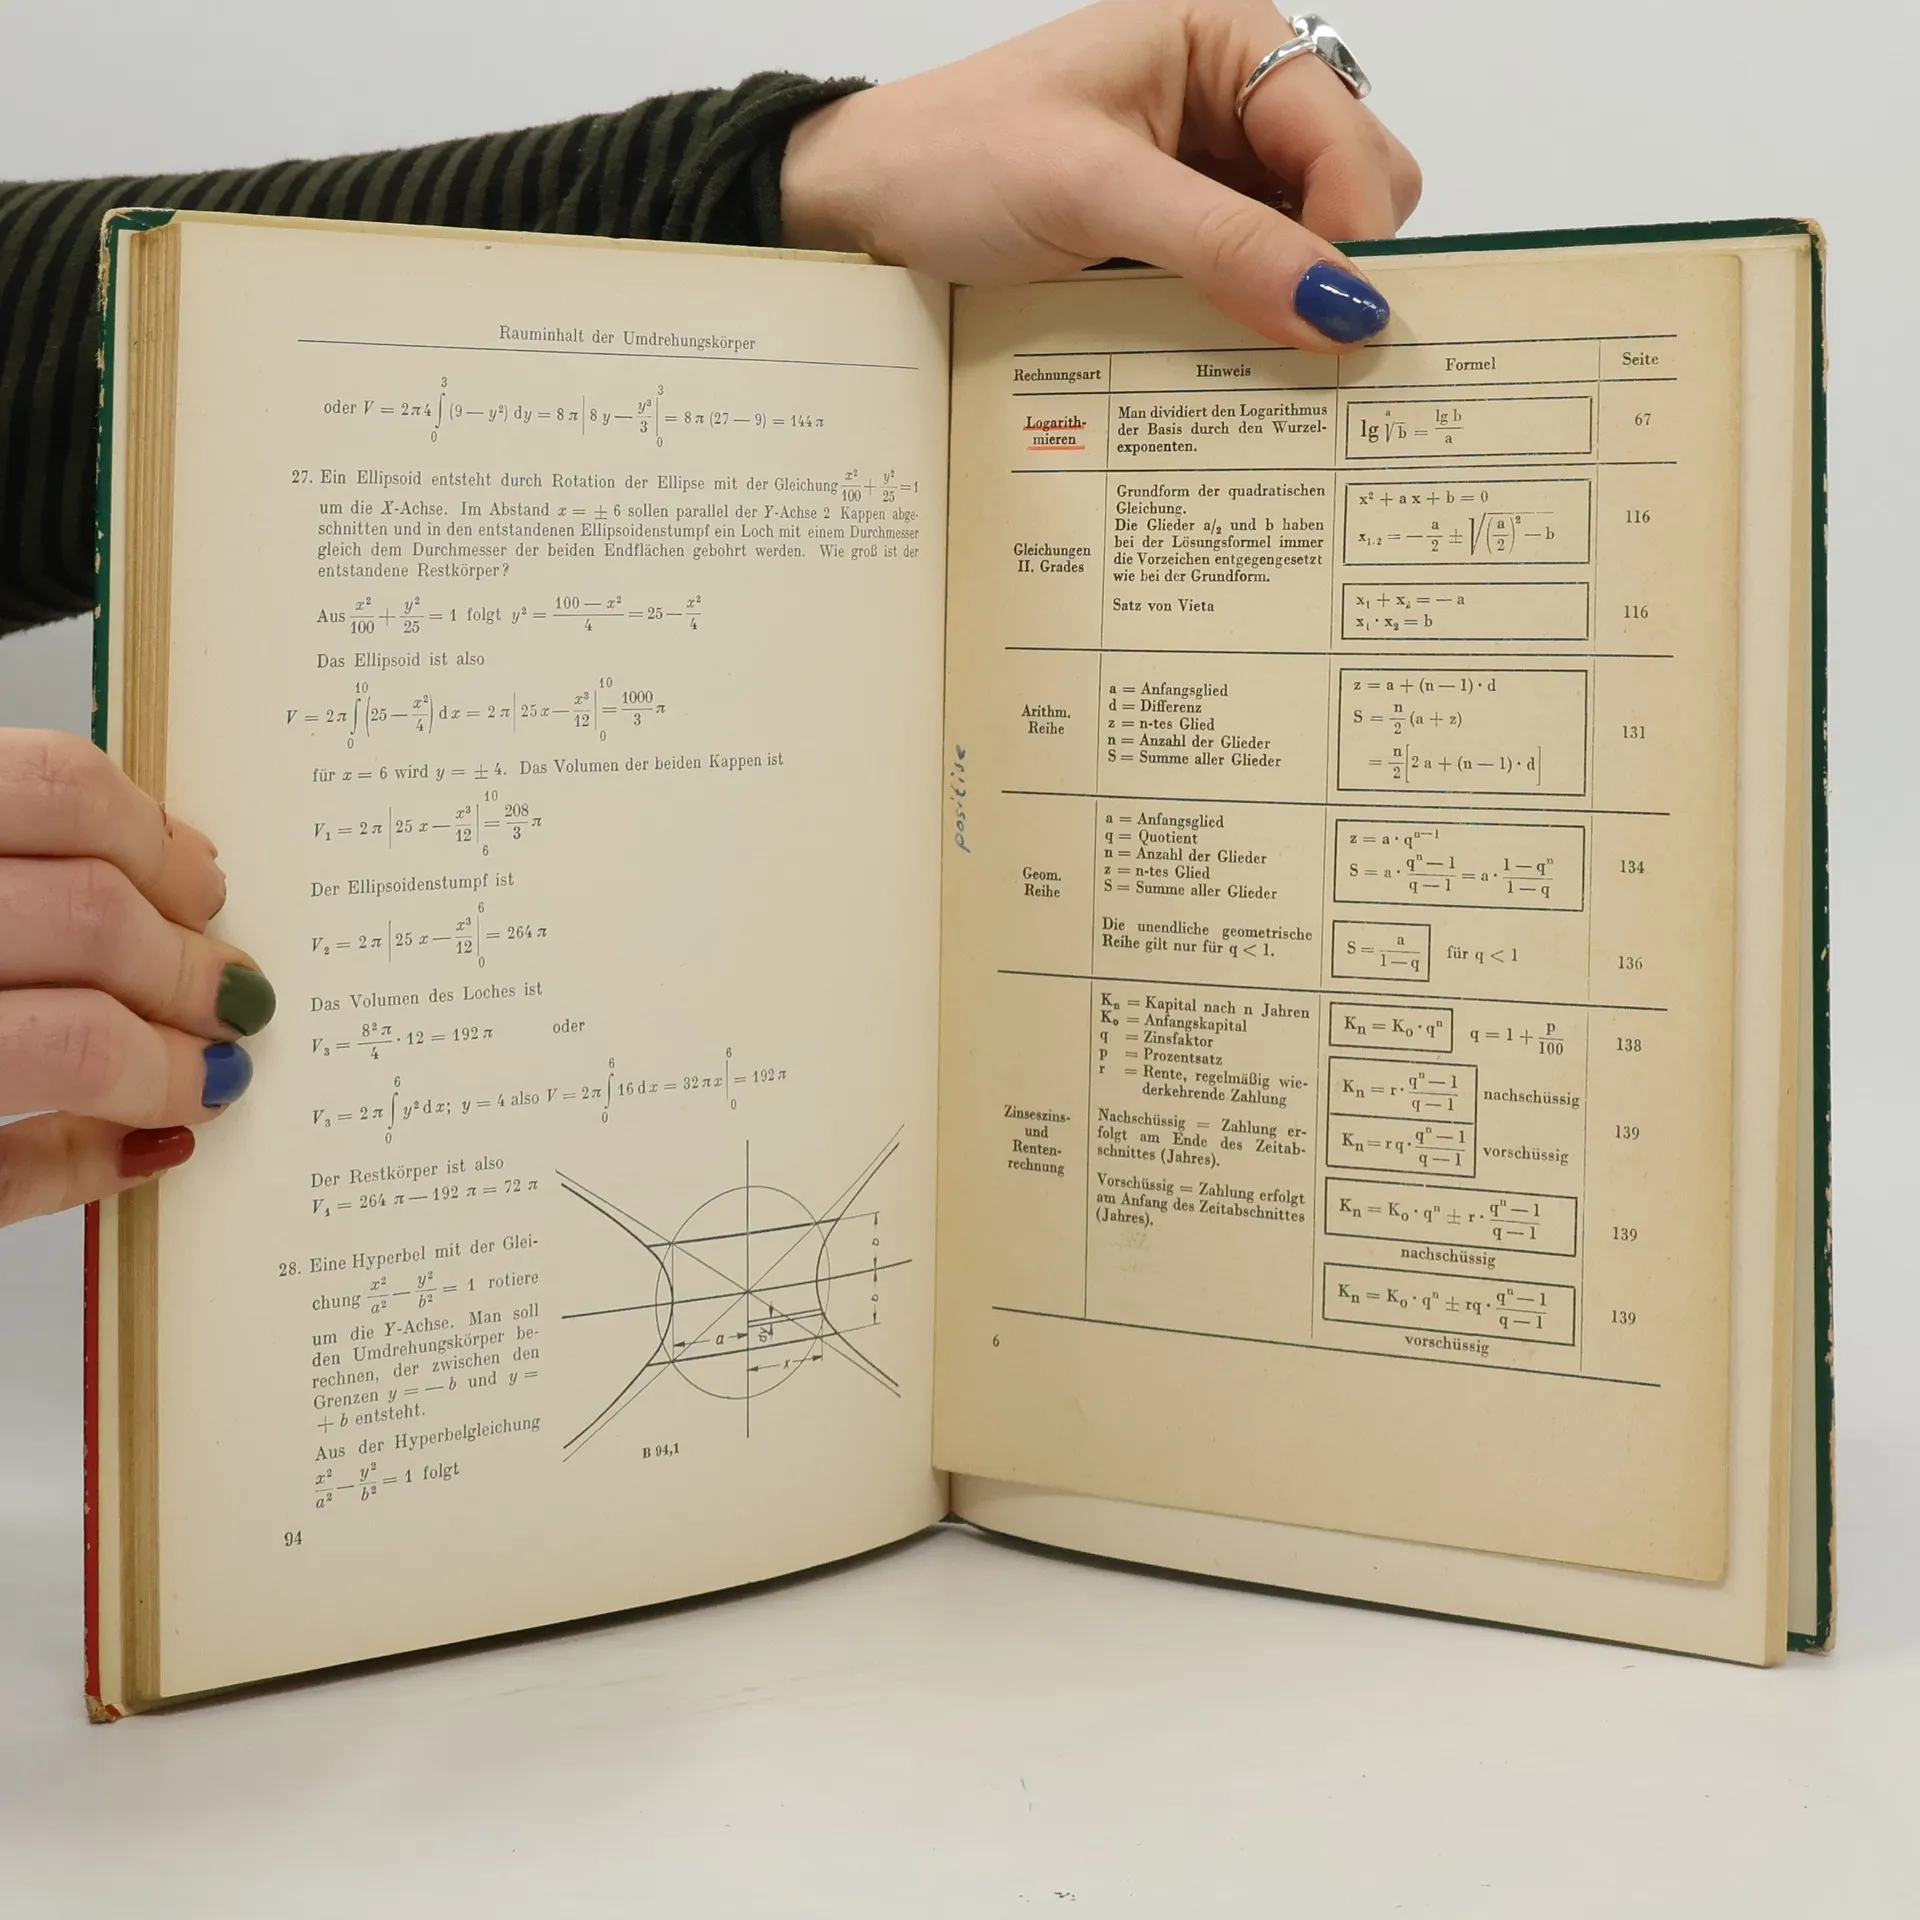 Rauminhalt der Umdrehungskörper
oder V = 2π4 ∫₀³ (9 — y²) dy = 8 π | 8 y — y³/3 |₀³ = 8 π (27 — 9) = 144 π
27. Ein Ellipsoid entsteht durch Rotation der Ellipse mit der Gleichung x²/100 + y²/25 = 1
um die X-Achse. Im Abstand x = ± 6 sollen parallel der Y-Achse 2 Kappen abge-
schnitten und in den entstandenen Ellipsoidenstumpf ein Loch mit einem Durchmesser
gleich dem Durchmesser der beiden Endflächen gebohrt werden. Wie groß ist der
entstandene Restkörper?
Aus x²/100 + y²/25 = 1 folgt y² = (100 — x²)/4 = 25 — x²/4
Das Ellipsoid ist also
V = 2π ∫₀¹⁰ (25 — x²/4) dx = 2 π | 25 x — x³/12 |₀¹⁰ = 1000/3 π
für x = 6 wird y = ± 4. Das Volumen der beiden Kappen ist
V₁ = 2 π | 25 x — x³/12 |₆¹⁰ = 208/3 π
Der Ellipsoidenstumpf ist
V₂ = 2 π | 25 x — x³/12 |₀⁶ = 264 π
Das Volumen des Loches ist
V₃ = 8² π/4 · 12 = 192 π oder
V₃ = 2 π ∫₀⁶ y² dx; y = 4 also V = 2π ∫₀⁶ 16 dx = 32 πx |₀⁶ = 192 π
Der Restkörper ist also
V₄ = 264 π — 192 π = 72 π
28. Eine Hyperbel mit der Glei-
chung x²/a² — y²/b² = 1 rotiere
um die Y-Achse. Man soll
den Umdrehungskörper be-
rechnen, der zwischen den
Grenzen y = — b und y =
+ b entsteht.
Aus der Hyperbelgleichung
x²/a² — y²/b² = 1 folgt
a
dy
x
b
b
B 94,1
94
positive
Rechnungsart Hinweis Formel Seite
Logarith-
mieren
Man dividiert den Logarithmus
der Basis durch den Wurzel-
exponenten.
lg ᵃ√b = lg b/a
67
Gleichungen
II. Grades
Grundform der quadratischen
Gleichung.
Die Glieder a/₂ und b haben
bei der Lösungsformel immer
die Vorzeichen entgegengesetzt
wie bei der Grundform.
x² + a x + b = 0
x₁.₂ = — a/2 ± √((a/2)² — b)
116
Satz von Vieta
x₁ + x₂ = — a
x₁ · x₂ = b
116
Arithm.
Reihe
a = Anfangsglied
d = Differenz
z = n-tes Glied
n = Anzahl der Glieder
S = Summe aller Glieder
z = a + (n — 1) · d
S = n/2 (a + z)
= n/2 [2 a + (n — 1) · d]
131
Geom.
Reihe
a = Anfangsglied
q = Quotient
n = Anzahl der Glieder
z = n-tes Glied
S = Summe aller Glieder
z = a · qⁿ⁻¹
S = a · (qⁿ — 1)/(q — 1) = a · (1 — qⁿ)/(1 — q)
134
Die unendliche geometrische
Reihe gilt nur für q < 1.
S = a/(1 — q) für q < 1
136
Zinseszins-
und
Renten-
rechnung
Kₙ = Kapital nach n Jahren
K₀ = Anfangskapital
q = Zinsfaktor
p = Prozentsatz
r = Rente, regelmäßig wie-
derkehrende Zahlung
Nachschüssig = Zahlung er-
folgt am Ende des Zeitab-
schnittes (Jahres).
Vorschüssig = Zahlung erfolgt
am Anfang des Zeitabschnittes
(Jahres).
Kₙ = K₀ · qⁿ q = 1 + p/100
138
Kₙ = r · (qⁿ — 1)/(q — 1) nachschüssig
Kₙ = r q · (qⁿ — 1)/(q — 1) vorschüssig
139
Kₙ = K₀ · qⁿ ± r · (qⁿ — 1)/(q — 1)
nachschüssig
139
Kₙ = K₀ · qⁿ ± rq · (qⁿ — 1)/(q — 1)
vorschüssig
139
6